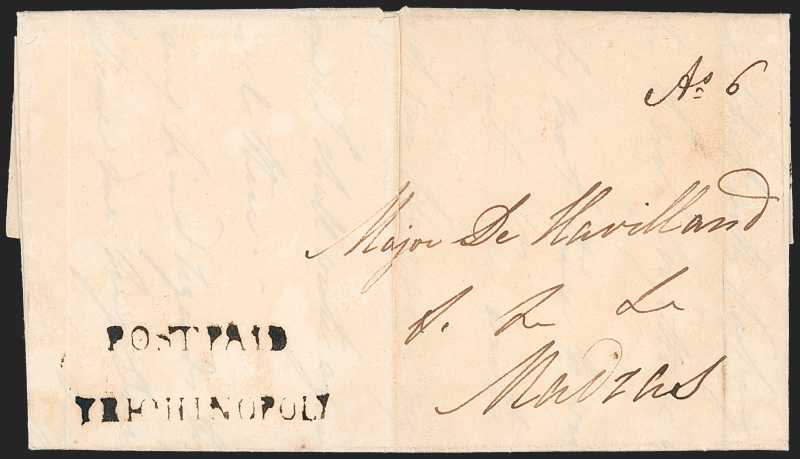 As 6
Major De Havilland
&. &c &c
Madras
POST PAID
TRICHINOPOLY